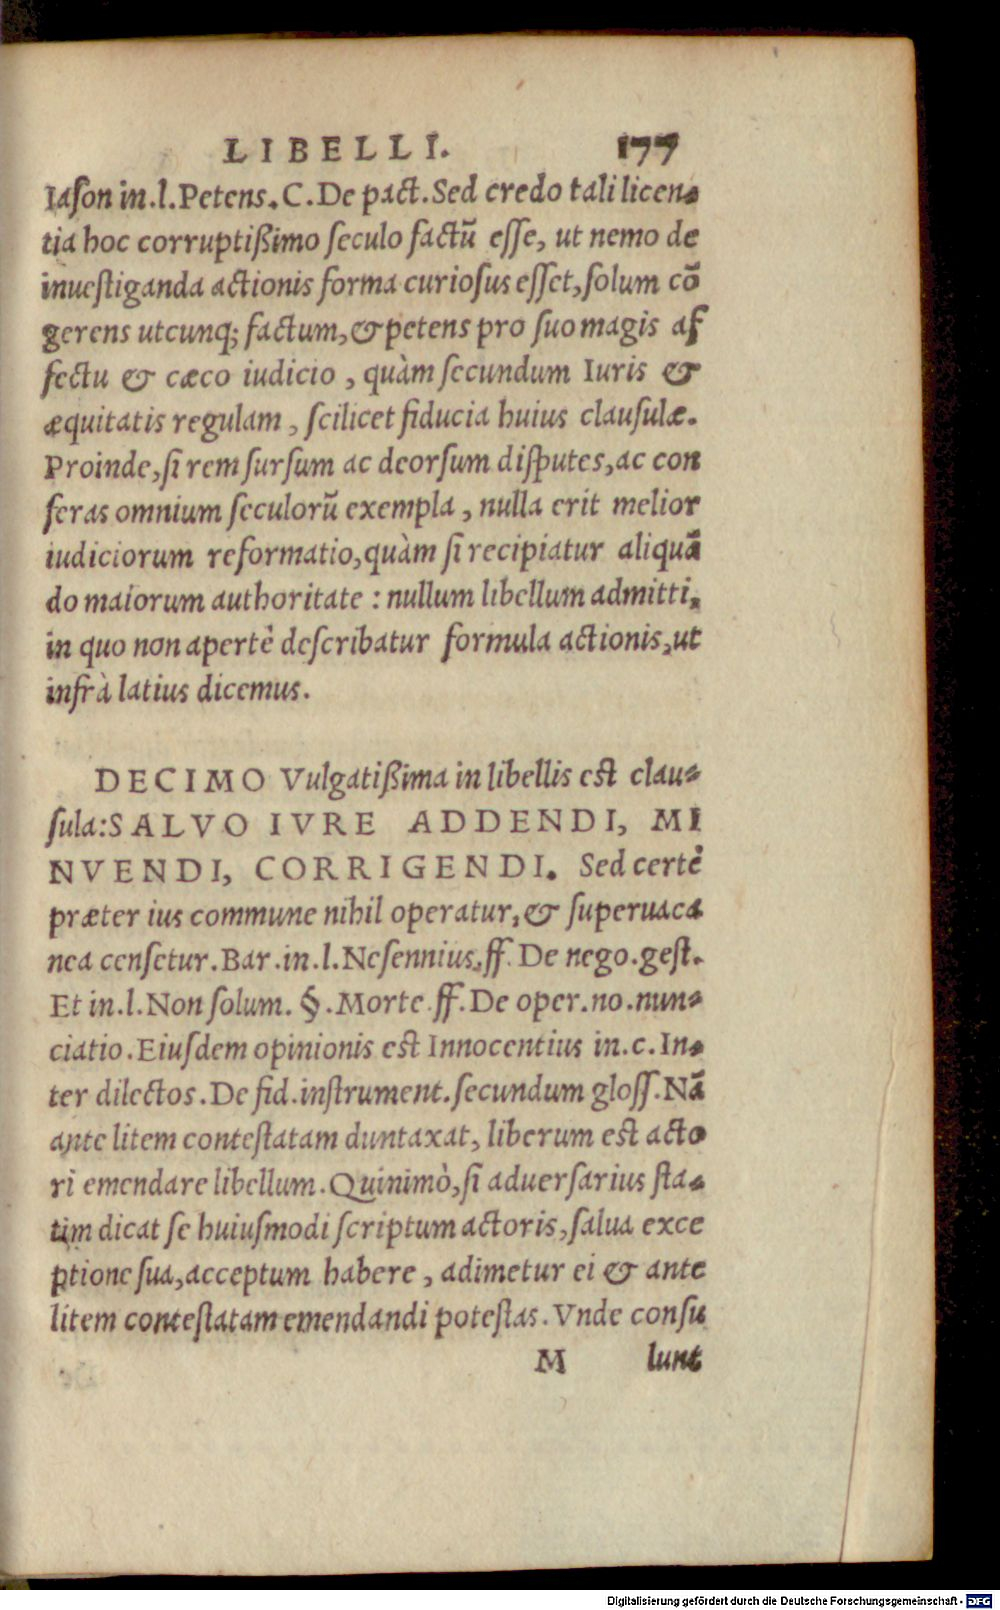 LIBELLI. 177
Iason in.l.Petens.C.De pact.Sed credo tali licen-
tia hoc corruptißimo seculo factū esse, ut nemo de
inuestiganda actionis forma curiosus esset, solum cō
gerens utcunq; factum, & petens pro suo magis af
fectu & cæco iudicio, quàm secundum Iuris &
æquitatis regulam, scilicet fiducia huius clausulæ.
Proinde, si rem sursum ac deorsum disputes, ac con
feras omnium seculorū exempla, nulla erit melior
iudiciorum reformatio, quàm si recipiatur aliquā
do maiorum authoritate: nullum libellum admitti,
in quo non apertè describatur formula actionis, ut
infrà latius dicemus.
DECIMO Vulgatißima in libellis est clau-
sula: SALVO IVRE ADDENDI, MI
NVENDI, CORRIGENDI. Sed certè
præter ius commune nihil operatur, & superuaca
nea censetur. Bar.in.l.Nesennius.ff. De nego.gest.
Et in.l.Non solum. §.Morte.ff.De oper.no.nun-
ciatio. Eiusdem opinionis est Innocentius in.c.In-
ter dilectos. De fid.instrument.secundum gloss. Nā
ante litem contestatam duntaxat, liberum est acto
ri emendare libellum. Quinimò, si aduersarius sta-
tim dicat se huiusmodi scriptum actoris, salua exce
ptione sua, acceptum habere, adimetur ei & ante
litem contestatam emendandi potestas. Vnde consu
M lunt
Digitalisierung gefördert durch die Deutsche Forschungsgemeinschaft - DFG